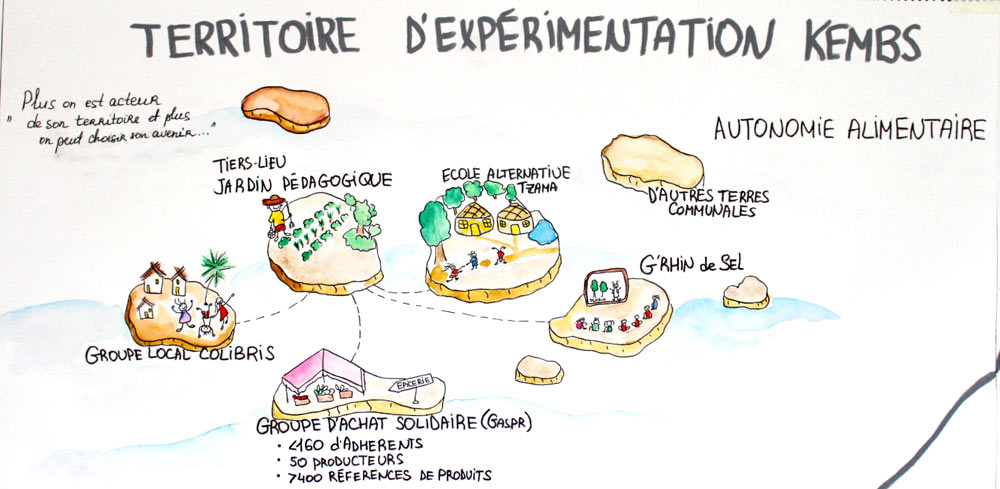 TERRITOIRE D'EXPÉRIMENTATION KEMBS
" Plus on est acteur
de son territoire et plus
on peut choisir son avenir... "
AUTONOMIE ALIMENTAIRE
TIERS-LIEU
JARDIN PÉDAGOGIQUE
ECOLE ALTERNATIVE
TZAMA
D'AUTRES TERRES
COMMUNALES
G'RHIN de SEL
GROUPE LOCAL COLIBRIS
EPICERIE
GROUPE D'ACHAT SOLIDAIRE (GASPR)
• 460 d'ADHERENTS
• 50 PRODUCTEURS
• 7400 RÉFERENCES DE PRODUITS